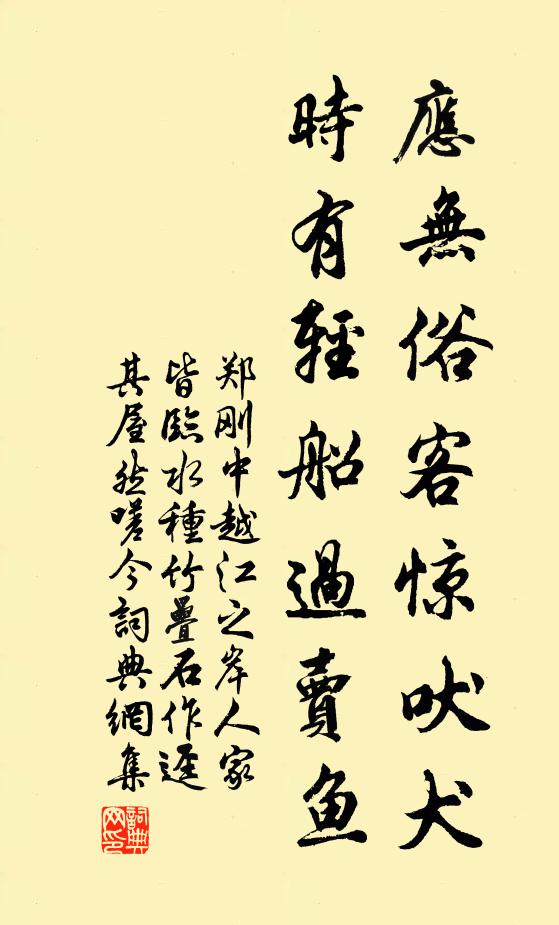 應無俗客惊吠犬
時有輕船過賣魚
郑刚中越江之岸人家
皆臨水種竹疊石作逕
其屋愁嗟今詞典網集
詞典网印